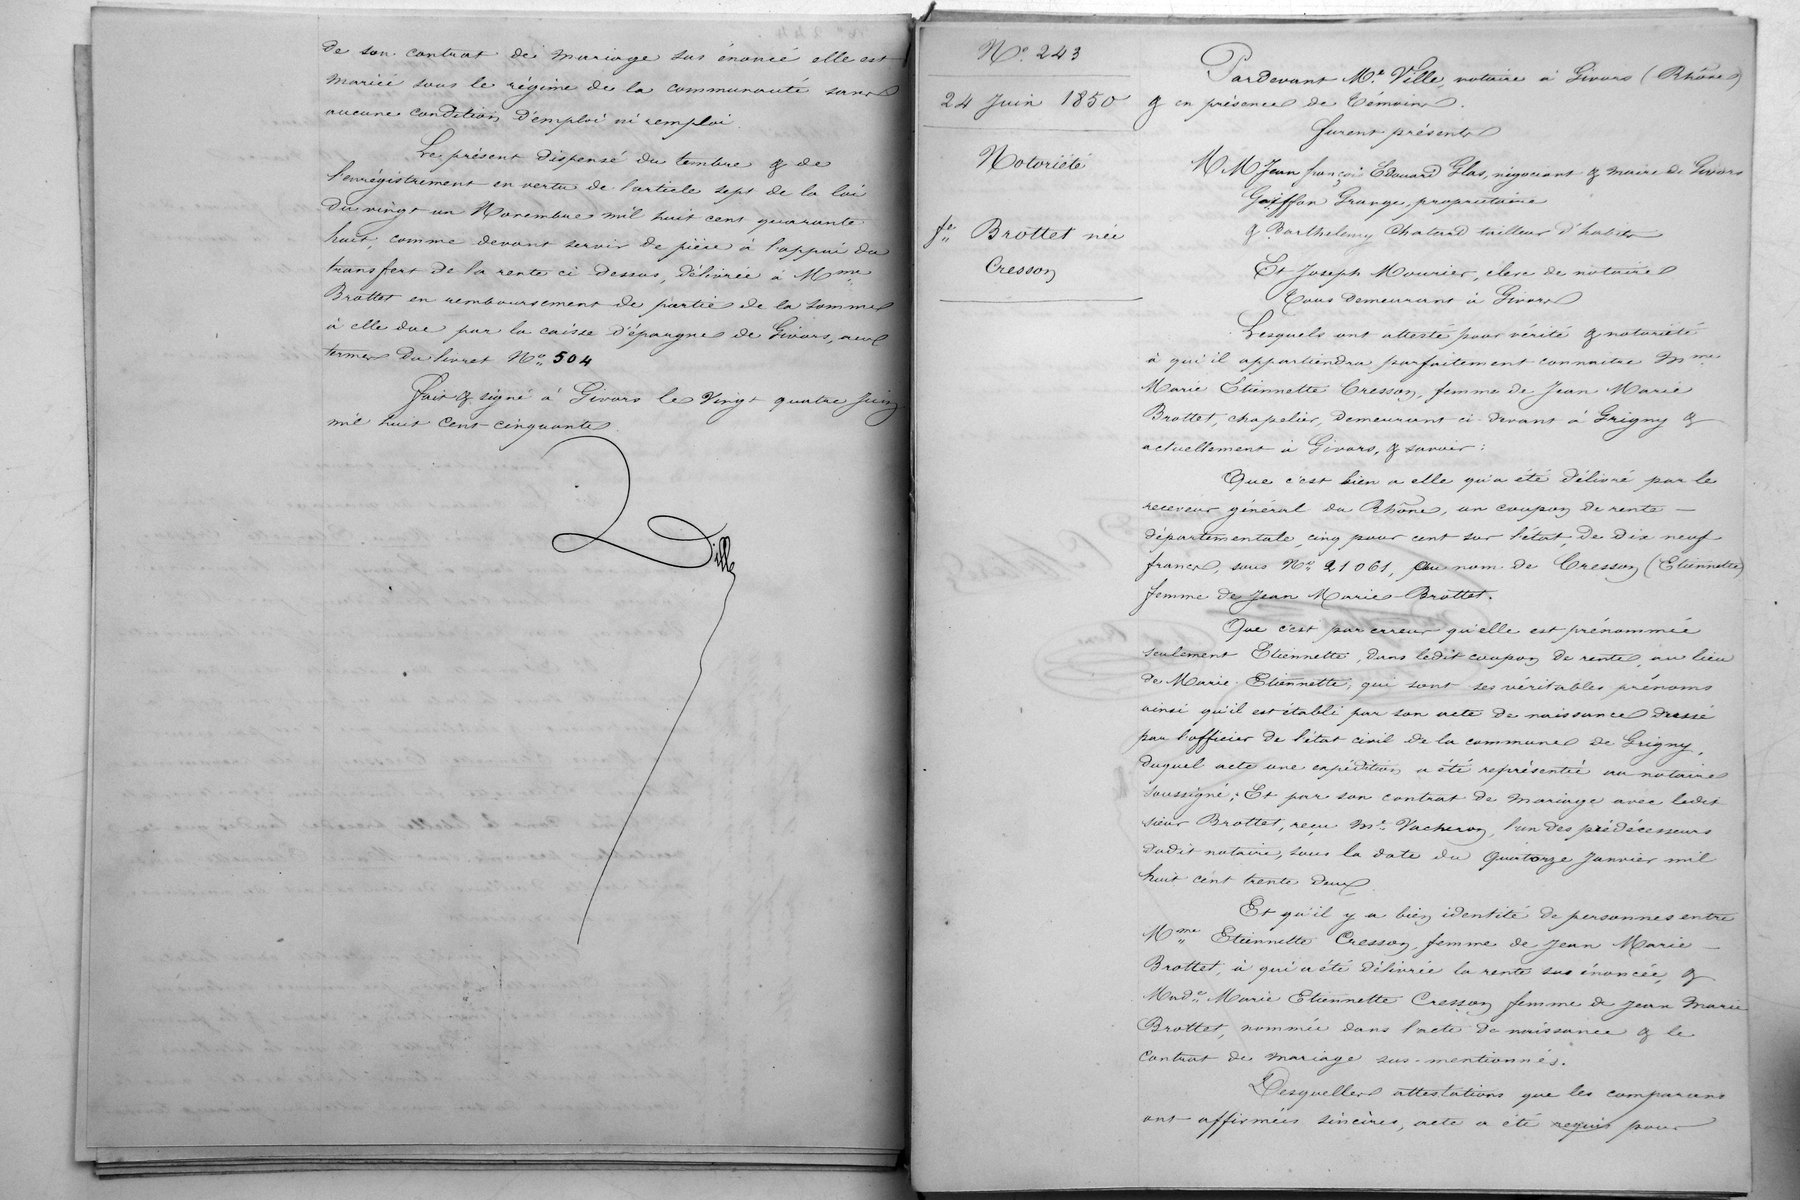 de son contrat de mariage sus énoncé elle est
mariée sous le régime de la communauté sans
aucune condition d'emploi ni remploi.
Le présent dispensé du timbre & de
l'enregistrement en vertu de l'article sept de la loi
du vingt un Novembre mil huit cent quarante
huit, comme devant servir de pièce à l'appui du
transfert de la rente ci dessus, délivrée à Mme
Brottet en remboursement de partie de la somme
à elle due par la caisse d'épargne de Givors, aux
termes du livret No 504
Fait & signé à Givors le vingt quatre Juin
mil huit cent cinquante.
Ville
No 243
24 Juin 1850
Notoriété
fe Brottet née
Cresson
Pardevant Me Ville, notaire à Givors (Rhône)
& en présence de témoins.
Furent présents
M.M. Jean françois Edouard Glas, négociant & maire de Givors
Goiffon Grange, propriétaire
& Barthelemy Chatard tailleur d'habits
Et Joseph Mourier, clerc de notaire
Tous demeurant à Givors
Lesquels ont attesté pour vérité & notoriété
à qui il appartiendra parfaitement connaitre Mme
Marie Etiennette Cresson, femme de Jean Marie
Brottet, chapelier, demeurant ci-devant à Grigny &
actuellement à Givors, & savoir :
Que c'est bien a elle qu'a été délivré par le
receveur général du Rhône, un coupon de rente —
départementale, cinq pour cent sur l'état, de dix neuf
francs, sous No 21061, au nom de Cresson (Etiennette)
femme de Jean Marie Brottet.
Que c'est par erreur qu'elle est prénommée
seulement Etiennette, dans ledit coupon de rente, au lieu
de Marie Etiennette, qui sont ses véritables prénoms
ainsi qu'il est établi par son acte de naissance dressé
par l'officier de l'état civil de la commune de Grigny,
duquel acte une expédition a été représentée au notaire
soussigné; Et par son contrat de mariage avec ledit
sieur Brottet, reçu Me Vacheron, l'un des prédécesseurs
dudit notaire, sous la date du quatorze Janvier mil
huit cent trente deux.
Et qu'il y a bien identité de personnes entre
Mme Etiennette Cresson, femme de Jean Marie —
Brottet, à qui a été délivrée la rente sus énoncée, &
Made Marie Etiennette Cresson femme de Jean Marie
Brottet, nommée dans l'acte de naissance & le
contrat de mariage sus-mentionnés.
Desquelles attestations que les comparans
ont affirmées sincères, acte a été requis pour